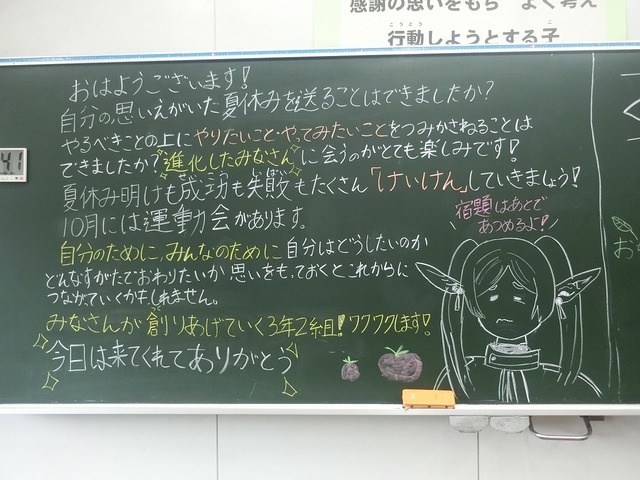 感謝の思いをもち よく考え
行動しようとする子
こうどう
こ
41
おはようございます!
自分の思いえがいた夏休みを送ることはできましたか?
やるべきことの上にやりたいこと・やってみたいことをつみかさねることは
できましたか?進化したみなさんに会うのがとても楽しみです!
夏休み明けも成功も失敗もたくさん「けいけん」していきましょう!
せいこう
しっぱい
10月には運動会があります。
宿題はあとで
あつめるよ!
自分のために、みんなのために 自分はどうしたいのか
どんなすがたでおわりたいか 思いをもっておくとこれからに
つながっていくかもしれません。
みなさんが創りあげていく3年2組!ワクワクします!
今日は来てくれてありがとう